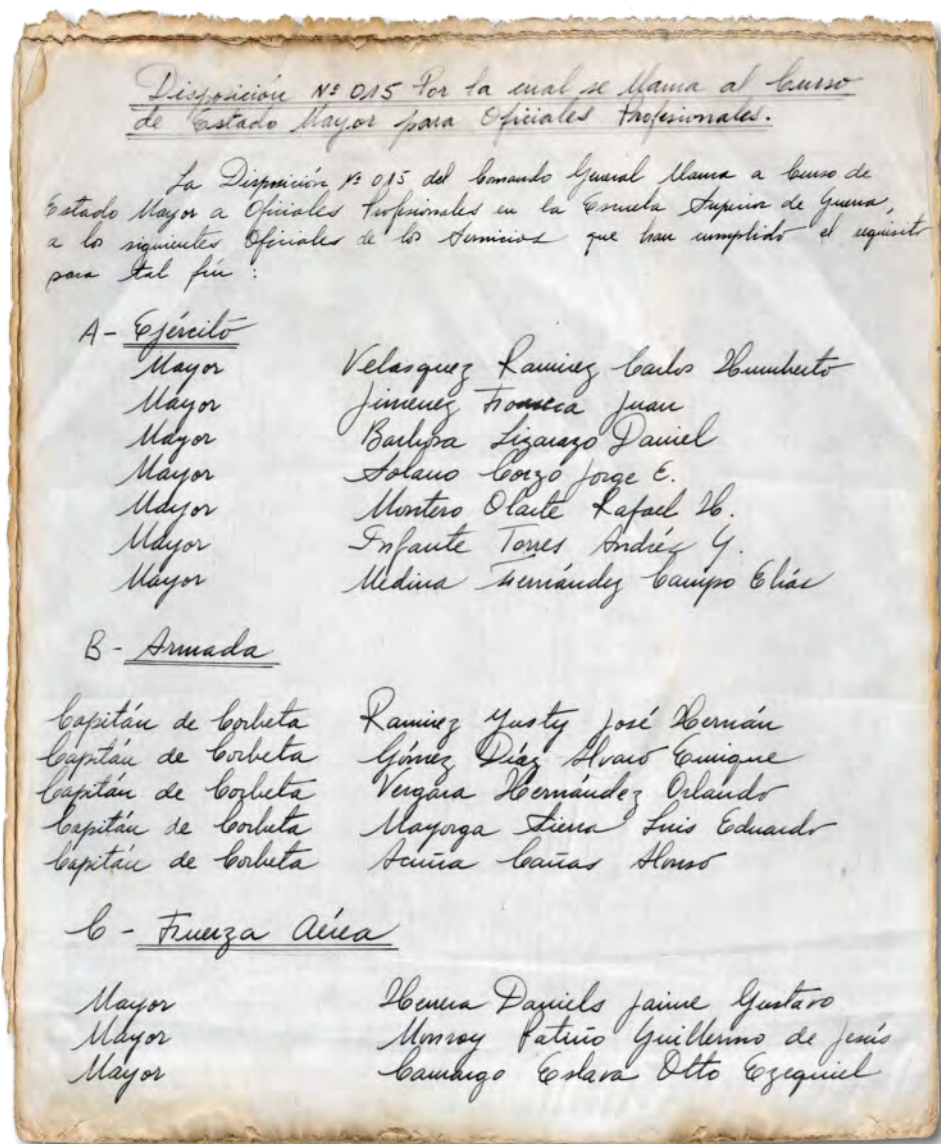 Disposición Nº 015 Por la cual se llama al Curso
de Estado Mayor para Oficiales Profesionales.
La Disposición Nº 015 del Comando General llama a Curso de
Estado Mayor a Oficiales Profesionales en la Escuela Superior de Guerra,
a los siguientes Oficiales de los Servicios que han cumplido el requisito
para tal fín :
A - Ejército
Mayor Velasquez Ramirez Carlos Humberto
Mayor Jimenez Fonseca Juan
Mayor Barbosa Lizarazo Daniel
Mayor Solano Corzo Jorge E.
Mayor Montero Olarte Rafael H.
Mayor Infante Torres Andrés G.
Mayor Medina Fernández Campo Elías
B - Armada
Capitán de Corbeta Ramirez Yusty José Hernán
Capitán de Corbeta Gómez Díaz Alvaro Enrique
Capitán de Corbeta Vergara Hernández Orlando
Capitán de Corbeta Mayorga Sierra Luis Eduardo
Capitán de Corbeta Acuña Cañas Alonso
C - Fuerza Aérea
Mayor Herrera Daniels Jaime Gustavo
Mayor Monroy Patiño Guillermo de Jesús
Mayor Camargo Eslava Otto Ezequiel